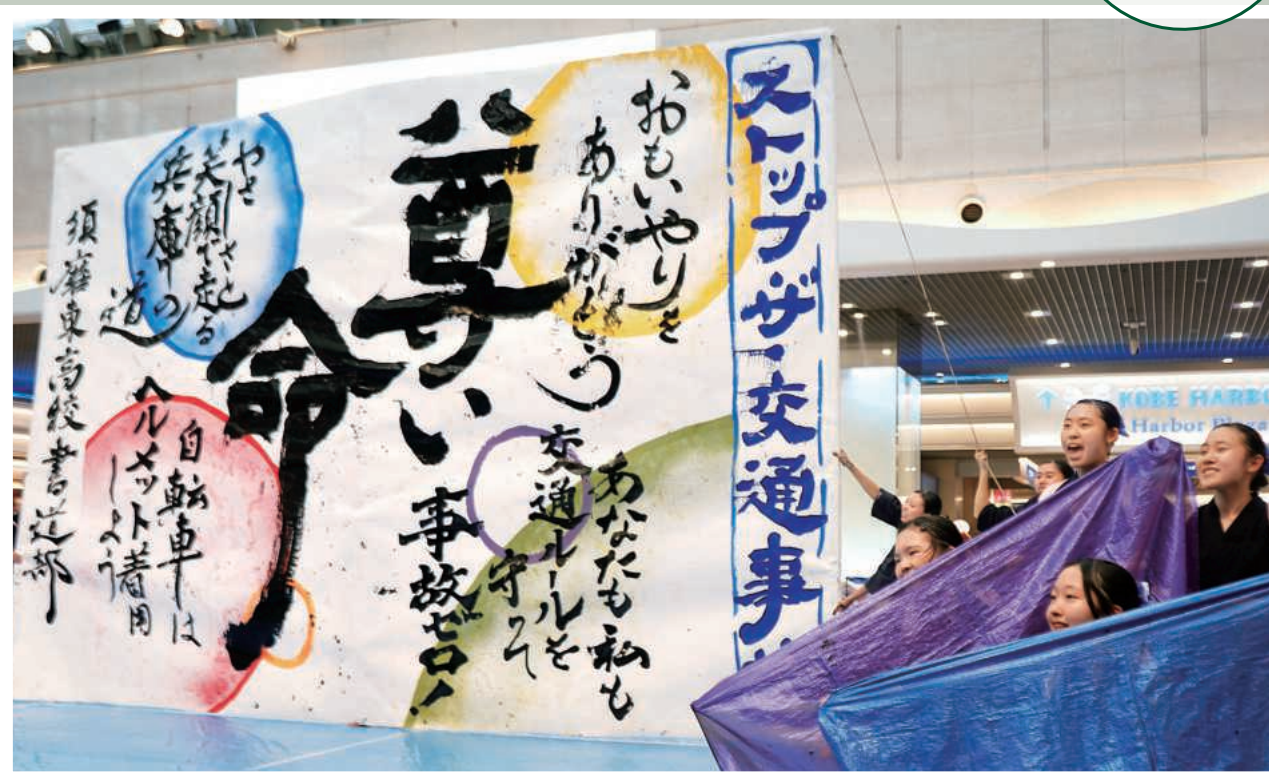 ストップ・ザ・交通事
おもいやりを
ありがとう
あなたも私も
交通ルールを
守って
尊い
事故ゼロ!
命
やさしさと
笑顔で走る
兵庫の
道
自転車は
ヘルメット着用
しよう
須磨東高校書道部
↑
KOBE HARBO
Harbor Plaga